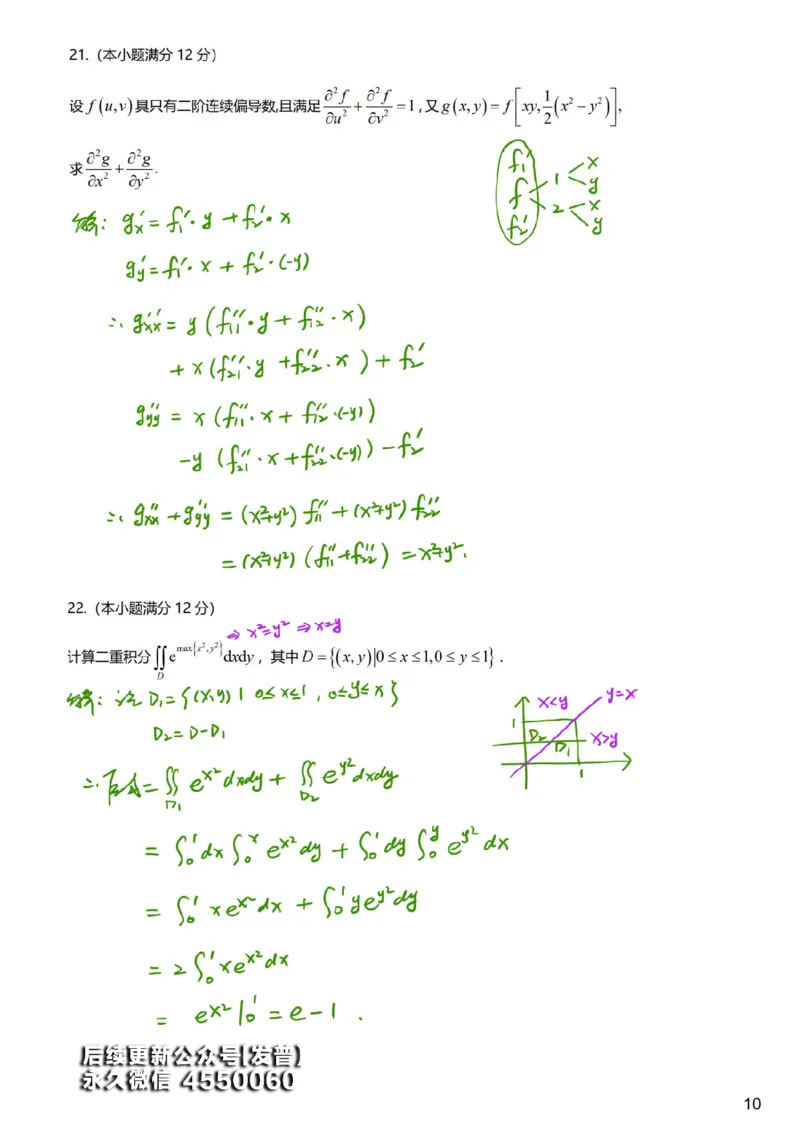 21.（本小题满分 12 分）
设 f(u,v) 具只有二阶连续偏导数,且满足 ∂²f/∂u² + ∂²f/∂v² = 1 , 又 g(x,y) = f[xy, 1/2(x² − y²)],
求 ∂²g/∂x² + ∂²g/∂y² .
f₁′
f 1 x y
f₂′ 2 x y
解: gx′ = f₁′·y + f₂′·x
gy′ = f₁′·x + f₂′·(-y)
∴ gxx″ = y(f₁₁″·y + f₁₂″·x)
+ x(f₂₁″·y + f₂₂″·x) + f₂′
gyy″ = x(f₁₁″·x + f₁₂″·(-y))
-y(f₂₁″·x + f₂₂″·(-y)) - f₂′
∴ gxx″ + gyy″ = (x²+y²)f₁₁″ + (x²+y²)f₂₂″
= (x²+y²)(f₁₁″+f₂₂″) = x²+y².
22.（本小题满分 12 分）
⇒ x²=y² ⇒ x=y
计算二重积分 ∬_D e^max{x²,y²} dxdy , 其中 D = {(x,y)|0≤x≤1,0≤y≤1} .
解: 记 D₁={(x,y) | 0≤x≤1 , 0≤y≤x}
D₂=D-D₁
x<y y=x
1 D₂ D₁ x>y
1
∴ 原式 = ∬_D₁ e^x² dxdy + ∬_D₂ e^y² dxdy
= ∫₀¹dx∫₀^x e^x² dy + ∫₀¹dy∫₀^y e^y² dx
= ∫₀¹ xe^x² dx + ∫₀¹ ye^y² dy
= 2∫₀¹ xe^x² dx
= e^x² |₀¹ = e-1 .
后续更新公众号[发曾]
永久微信 4550060
10